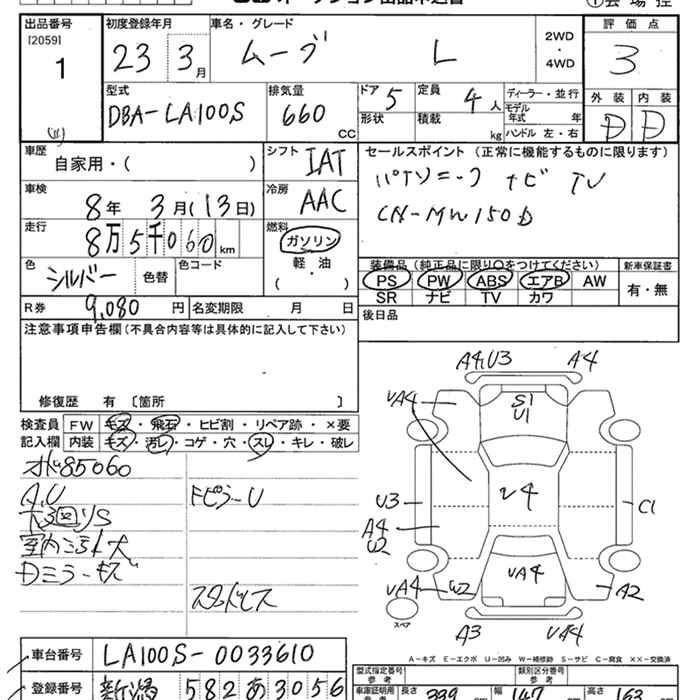 オークション出品申込書
①会場控
出品番号 初度登録年月 車名・グレード 2WD・4WD 評価点
[2059]
1 23 3月 ムーヴ L 3
型式 DBA-LA100S 排気量 660 CC
ドア 5 定員 4人 ディーラー・並行
形状 積載 kg モデル年式 年 ハンドル 左・右
外装 D 内装 D
車歴 自家用・( ) シフト IAT
セールスポイント(正常に機能するものに限ります)
ナビ TV
CN-MW150D
車検 8年 3月(13日) 冷房 AAC
走行 8万5千060km 燃料 ガソリン 軽・油 ( )
色 シルバー 色替 色コード
装備品(純正品に限り〇をつけてください) 新車保証書
PS PW ABS エアB AW 有・無
SR ナビ TV カワ
R券 9,080円 名変期限 月 日
後日品
注意事項申告欄(不具合内容等は具体的に記入して下さい)
修復歴 有〔箇所 〕
検査員記入欄 FW キズ・飛石・ヒビ割・リペア跡・×要
内装 キズ・汚レ・コゲ・穴・スレ・キレ・破レ
85060
A,U
室内ゴミ大
Dミラーキズ
FピラーU
スタッドレス
A4,U3 A4
VA4
S1
U1
U3 V4 C1
A4
U2
VA4 W2 VA4 A2
スペア
A3 VA4
A-キズ E-エクボ U-凹み W-補修跡 S-サビ C-腐食 XX-交換済
車台番号 LA100S-0033610
登録番号 新潟 582 あ 3056
型式指定番号 類別区分番号
参考
車庫証明用 長さ 339 幅 147 高さ 163
参考